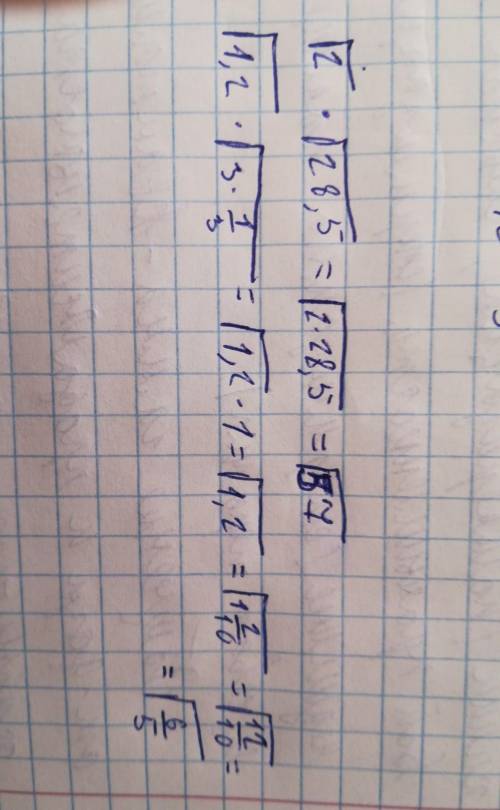 √2 · √28,5 = √2·28,5 = √57
√1,2 · √3·1/3 = √1,2 · 1 = √1,2 = √1 2/10 = √12/10 =
= √6/5